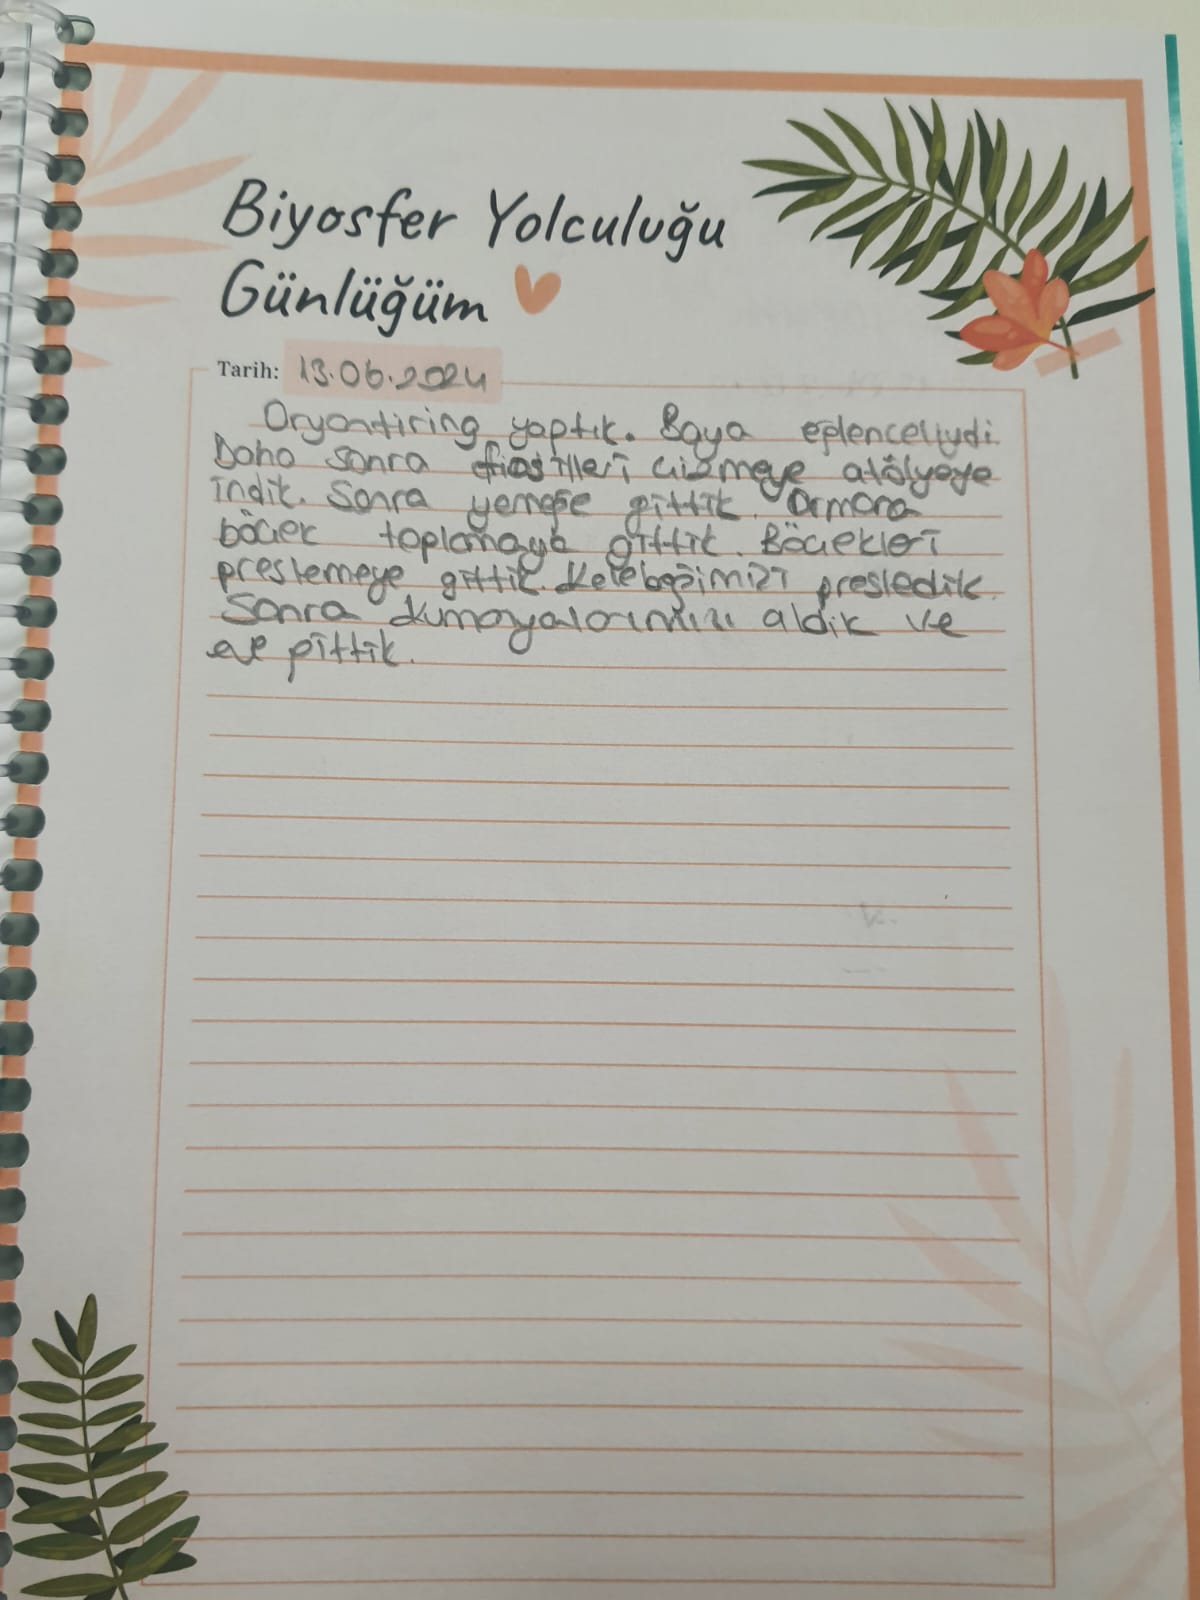 Biyosfer Yolculuğu
Günlüğüm
Tarih: 13.06.2024
Oryantiring yaptık. Baya eğlenceliydi.
Daha sonra fosilleri çizmeye atölyeye
indik. Sonra yemeğe gittik. Ormana
böcek toplamaya gittik. Böcekleri
preslemeye gittik. Kelebeğimizi presledik.
Sonra kumanyalarımızı aldık ve
eve gittik.